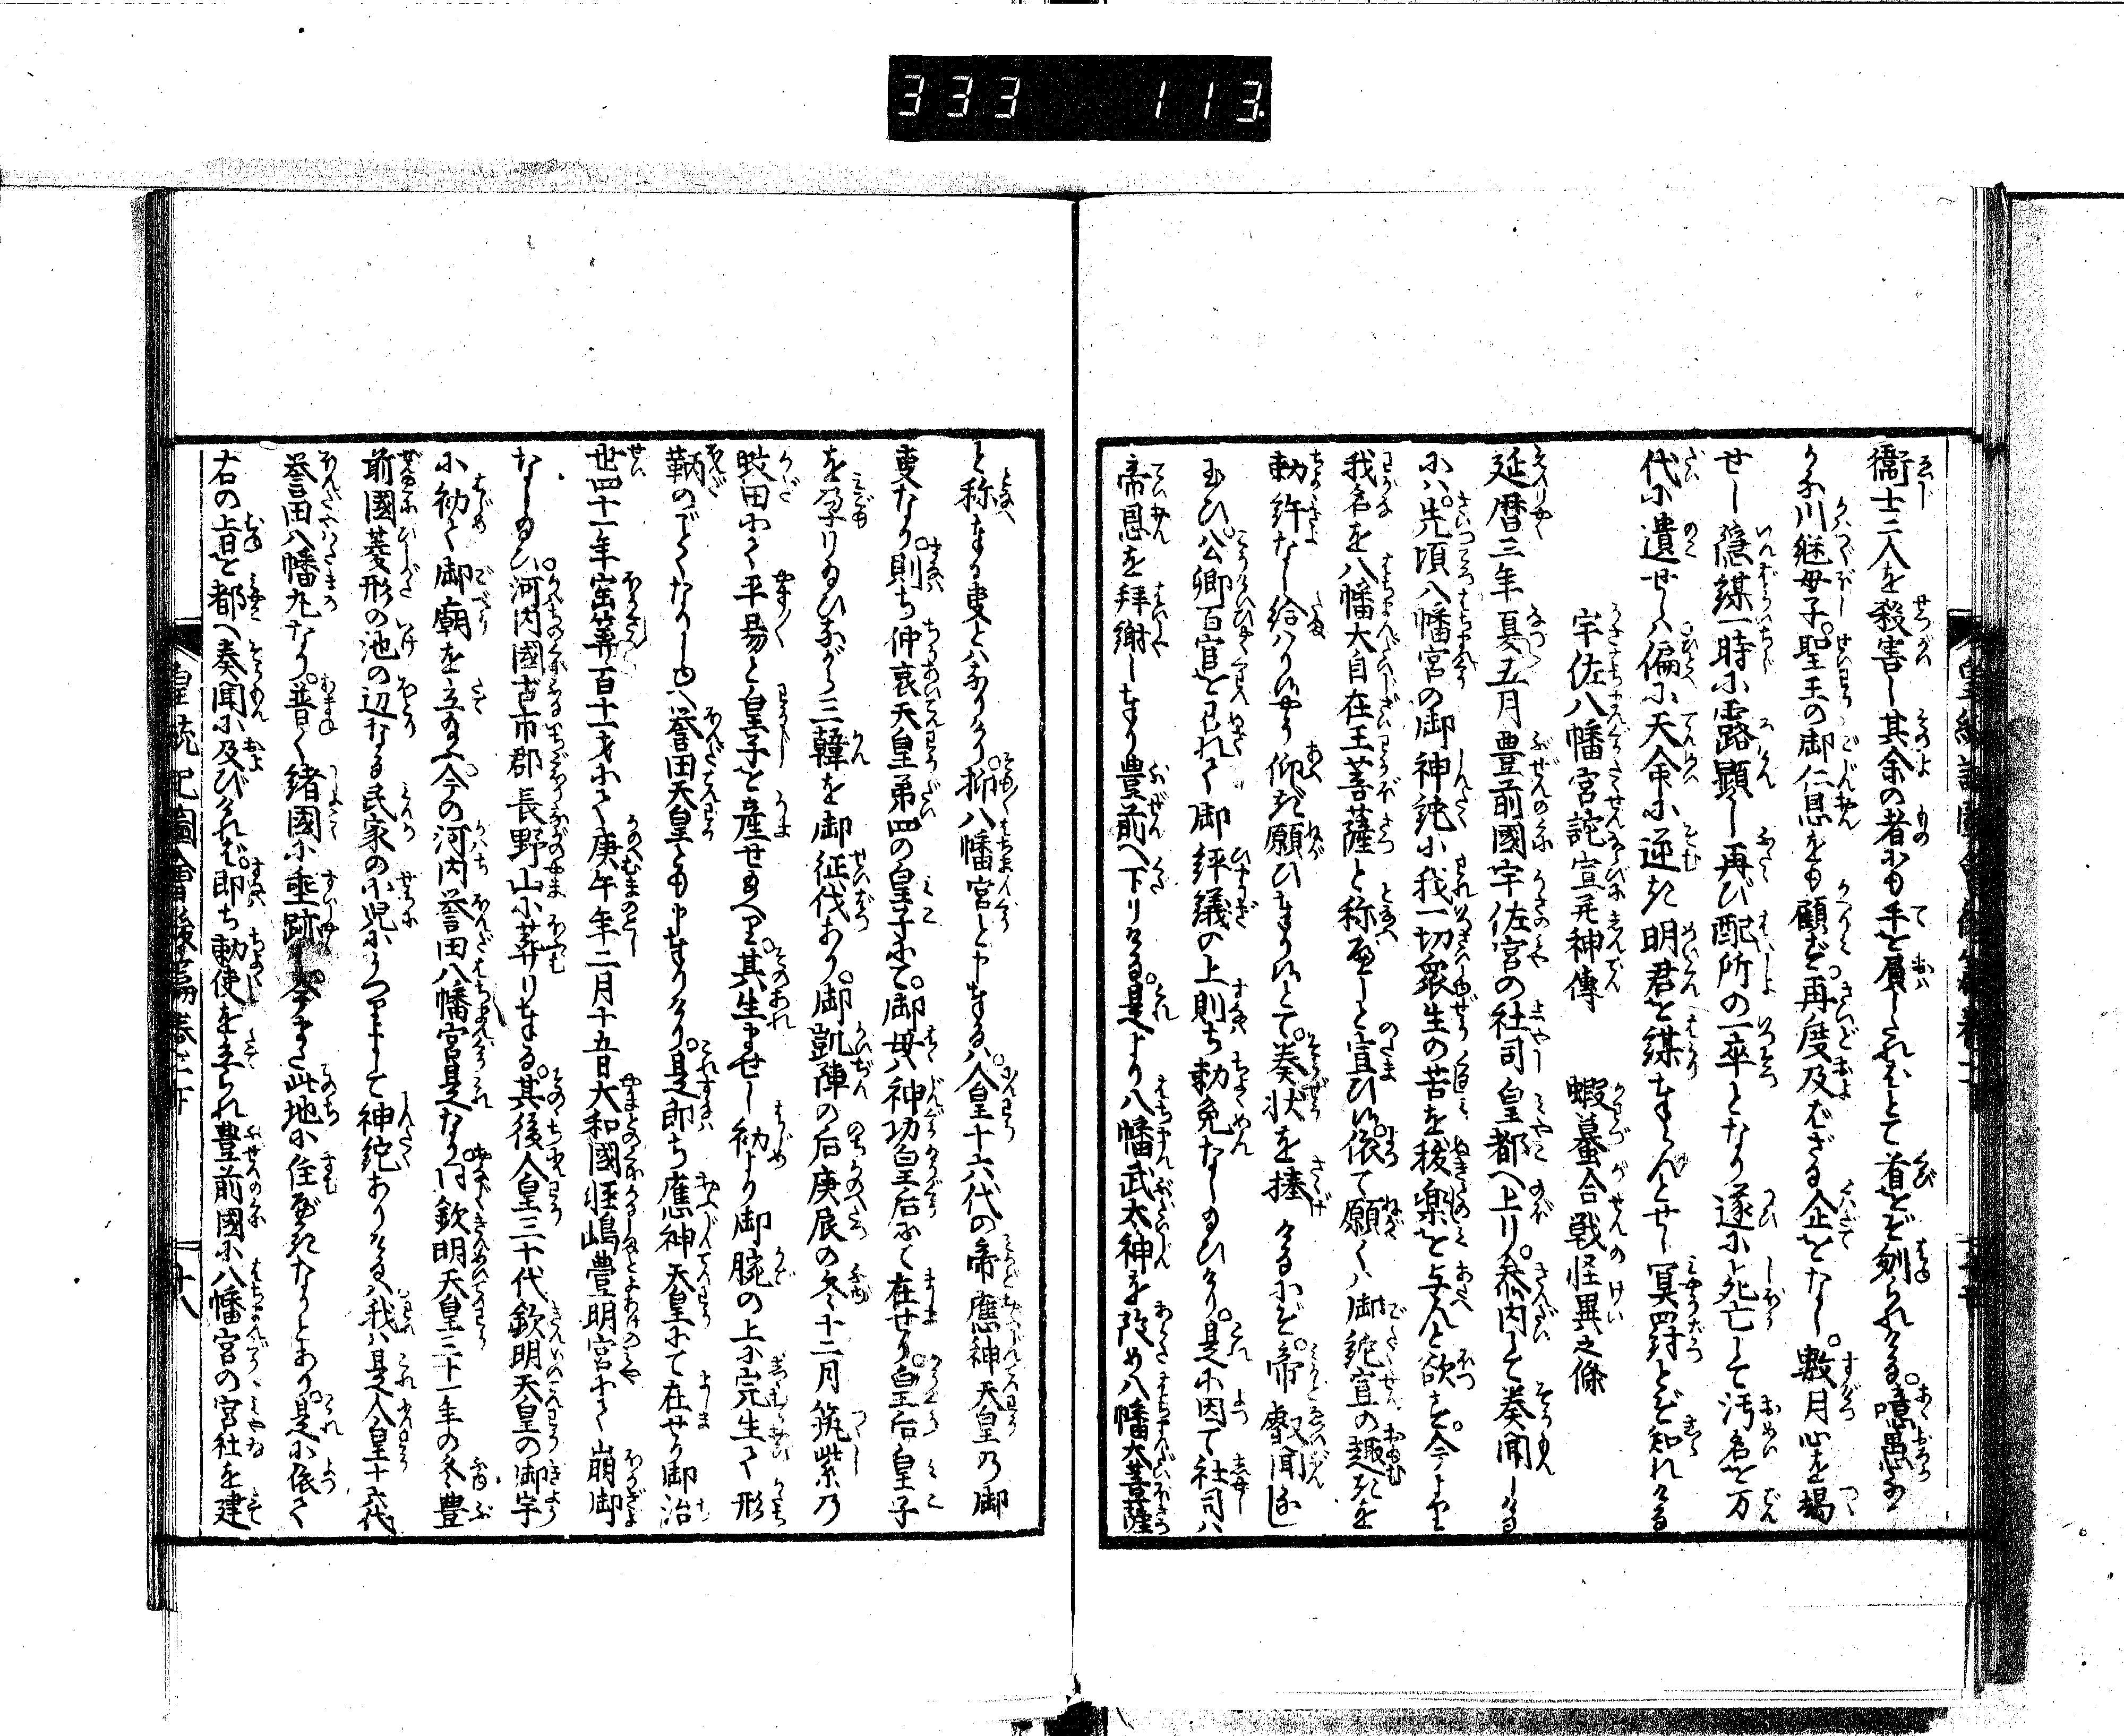 333 113.
衞士二人を殺害し其余の者にも手を屓したればとて首をぞ刎られける。噫愚なる
かな川継母子。聖王の御仁恩をも顧ず。再度及ばざる企をなし。數月心を竭
せし隠謀一時に露顕し再び配所の一卒となり遂に死亡して汚名を万
代に遺せしハ偏に天命に逆ひ明君を謀奉らんとせし冥罸とぞ知れける
宇佐八幡宮詫宣并神傳　蝦蟇合戦怪異之條
延暦三年夏五月豊前國宇佐宮の社司皇都へ上り。参内して奏聞しける
にハ。先頃八幡宮の御神託に我一切衆生の苦を抜楽を与んと欲す。今より
我名を八幡大自在王菩薩と称すべしと宣ひぬ。依て願くハ御託宣の趣きを
勅許なし給ハりぬやう仰ぎ願ひ奉りぬとて。奏状を捧けるにぞ。帝叡聞まし
玉ひ。公卿百官を召れて御評議の上則ち勅免なし玉ひけり。是に因て社司ハ
帝恩を拜謝し奉り豊前へ下りける。是より八幡武大神を改め八幡大菩薩
と称奉る事とハなりけり。抑八幡宮と申奉るハ。人皇十六代の帝應神天皇乃御
事なり。則ち仲哀天皇第四の皇子にて。御母ハ神功皇后にて在せり。皇后皇子
を孕りゐひながら三韓を御征伐あり。御凱陣の后庚辰の冬十二月筑紫乃
蚊田にて平易と皇子を産せ玉へり。其生ませし初より御腕の上に宍生て形
鞆のごとくなりしゆへ誉田天皇とも申奉りけり。是即ち應神天皇にて在せり御治
世四十一年宝算百十一才にて庚午年二月十五日大和國軽嶋豊明宮にて崩御
なし玉ひ。河内國古市郡長野山に葬り奉る。其後人皇三十代欽明天皇の御宇
に初て御廟を立玉ふ。今の河内誉田八幡宮是なり。同欽明天皇三十一年の冬豊
前國菱形の池の辺なる民家の小児にのりましまして神託ありけるハ。我ハ是人皇十六代
誉田八幡丸なり。普く緒國に垂跡し。今また此地に住べきなりとあり。是に依て
右の旨を都へ奏聞に及びけれバ。即ち勅使を立られ豊前國に八幡宮の宮社を建
皇統記圖會後篇巻之下　廿八